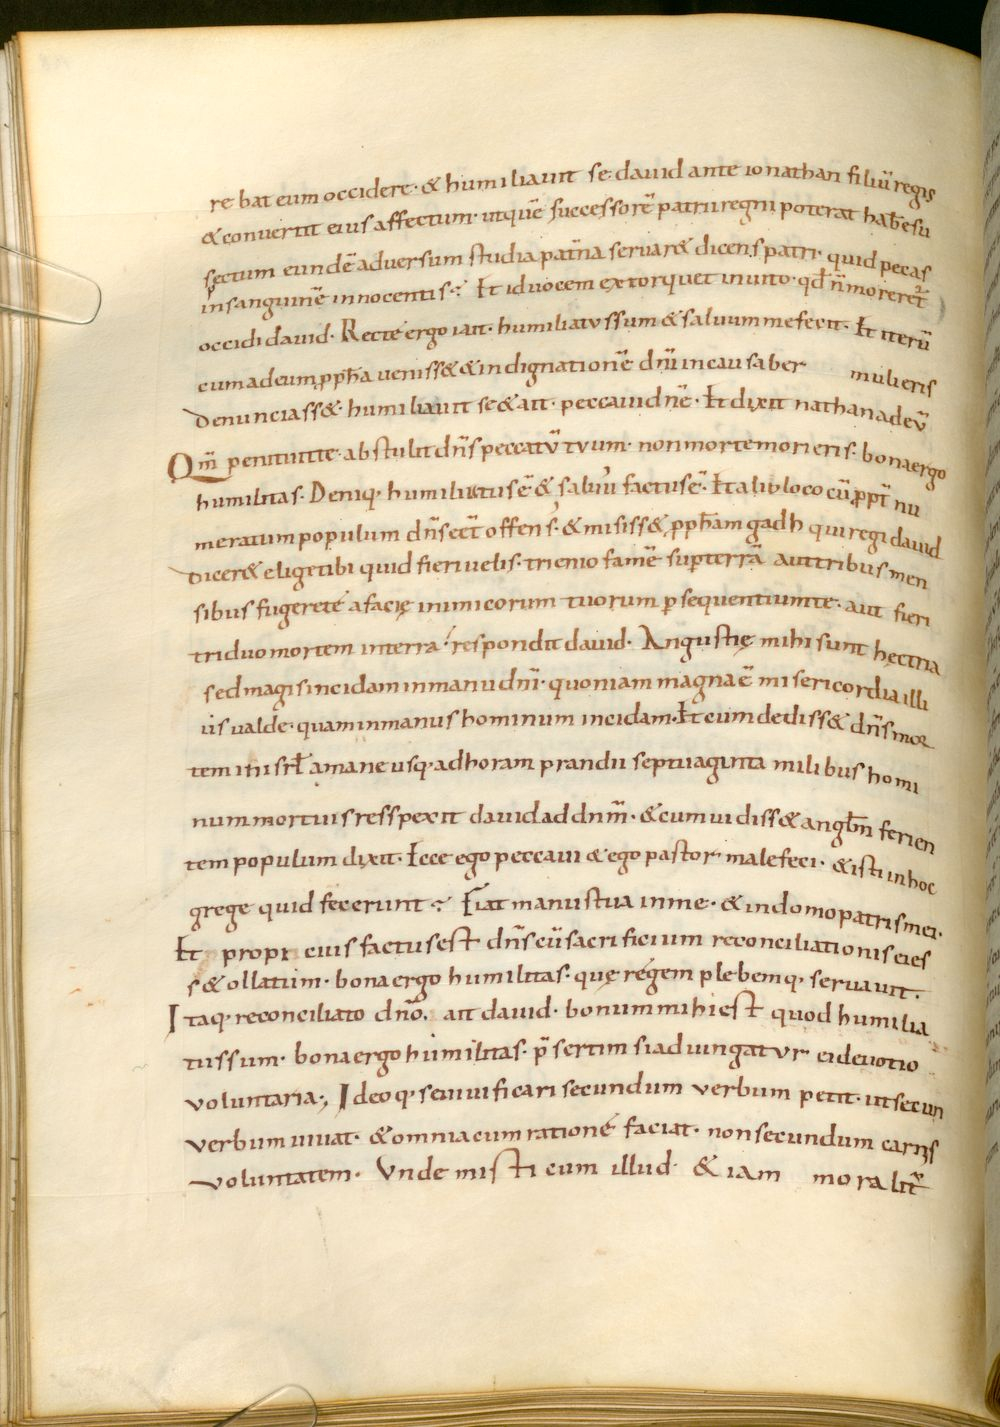 re bat eum occidere· & humiliauit se dauid ante ionathan filiū regis
& conuertit eius affectum· utquē successorē patrii regni poterat hab̄e su
sectum eundē aduersum studia pat̄na seruar& dicens patri· quid peccas
in sanguinē innocentis? Et id uocem extorquet inuito· qd̄ n̄ moreret̄
occidi dauid· Recte ergo iait· humiliatus sum & saluum me fecit· Et iterū
cum ad eum p̱pħa ueniss& & indignationē dn̄i in causa ber mulieris
denunciass&· humiliauit se & ait· peccaui dn̄e· Et dixit nathan ad eū
Qm̄ penituit te· abstulit dn̄s peccatū tuum· non morte morieris· bona ergo
humilitas· Deniq· humiliatus ē & saluus factus ē· Et alio loco cū ppt̄ nu
meratum populum dn̄s eēt offens̄· & misiss& p̱pħam gadh qui regi dauid
dicer& elige tibi quid fieri uelis· trienio famē sup terrā aut tribus men
sibus fugere té a facię inimicorum tuorum p̱sequentium te· aut fieri
triduo mortem in terra· respondit dauid· Angustię mihi sunt hęc tria
sed magis incidam in manu dn̄i· quoniam magna ē misericordia illi
us ualde· quam in manus hominum incidam· Et cum dediss& dn̄s mor
tem in isrł a mane usq· ad horam prandii septuaginta milibus homi
num mortuis resspexit dauid ad dn̄m· & cum uidiss& angłm ferien
tem populum dixit· Ecce ego peccaui & ego pastor male feci· & isti in hoc
grege quid fecerunt? Fiat manus tua in me· & in domo patris mei·
Et propt eius factus est dn̄s cū sacrificium reconciliationis eies
s& ollatum· bona ergo humilitas· quę régem plebemq· seruauit·
Itaq· reconciliato dn̄o· ait dauid· bonum mihi est quod humilia
tus sum· bona ergo húmilitas· p̄sertim si adiungatur ei deuotio
uoluntaria·, Ideoq· se uiuificari secundum verbum petit· ut secun
verbum uiuat· & omnia cum rationé faciat· non secundum carnis
uoluntatem· Vnde misticum illud· & iam moralit̄